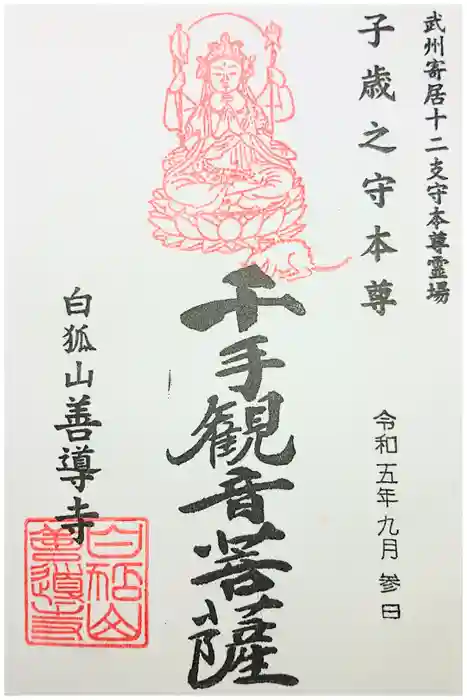 武州寄居十二支守本尊霊場
子歳之守本尊
令和五年九月参日
千手観音菩薩
白狐山善導寺
白狐山
善導寺